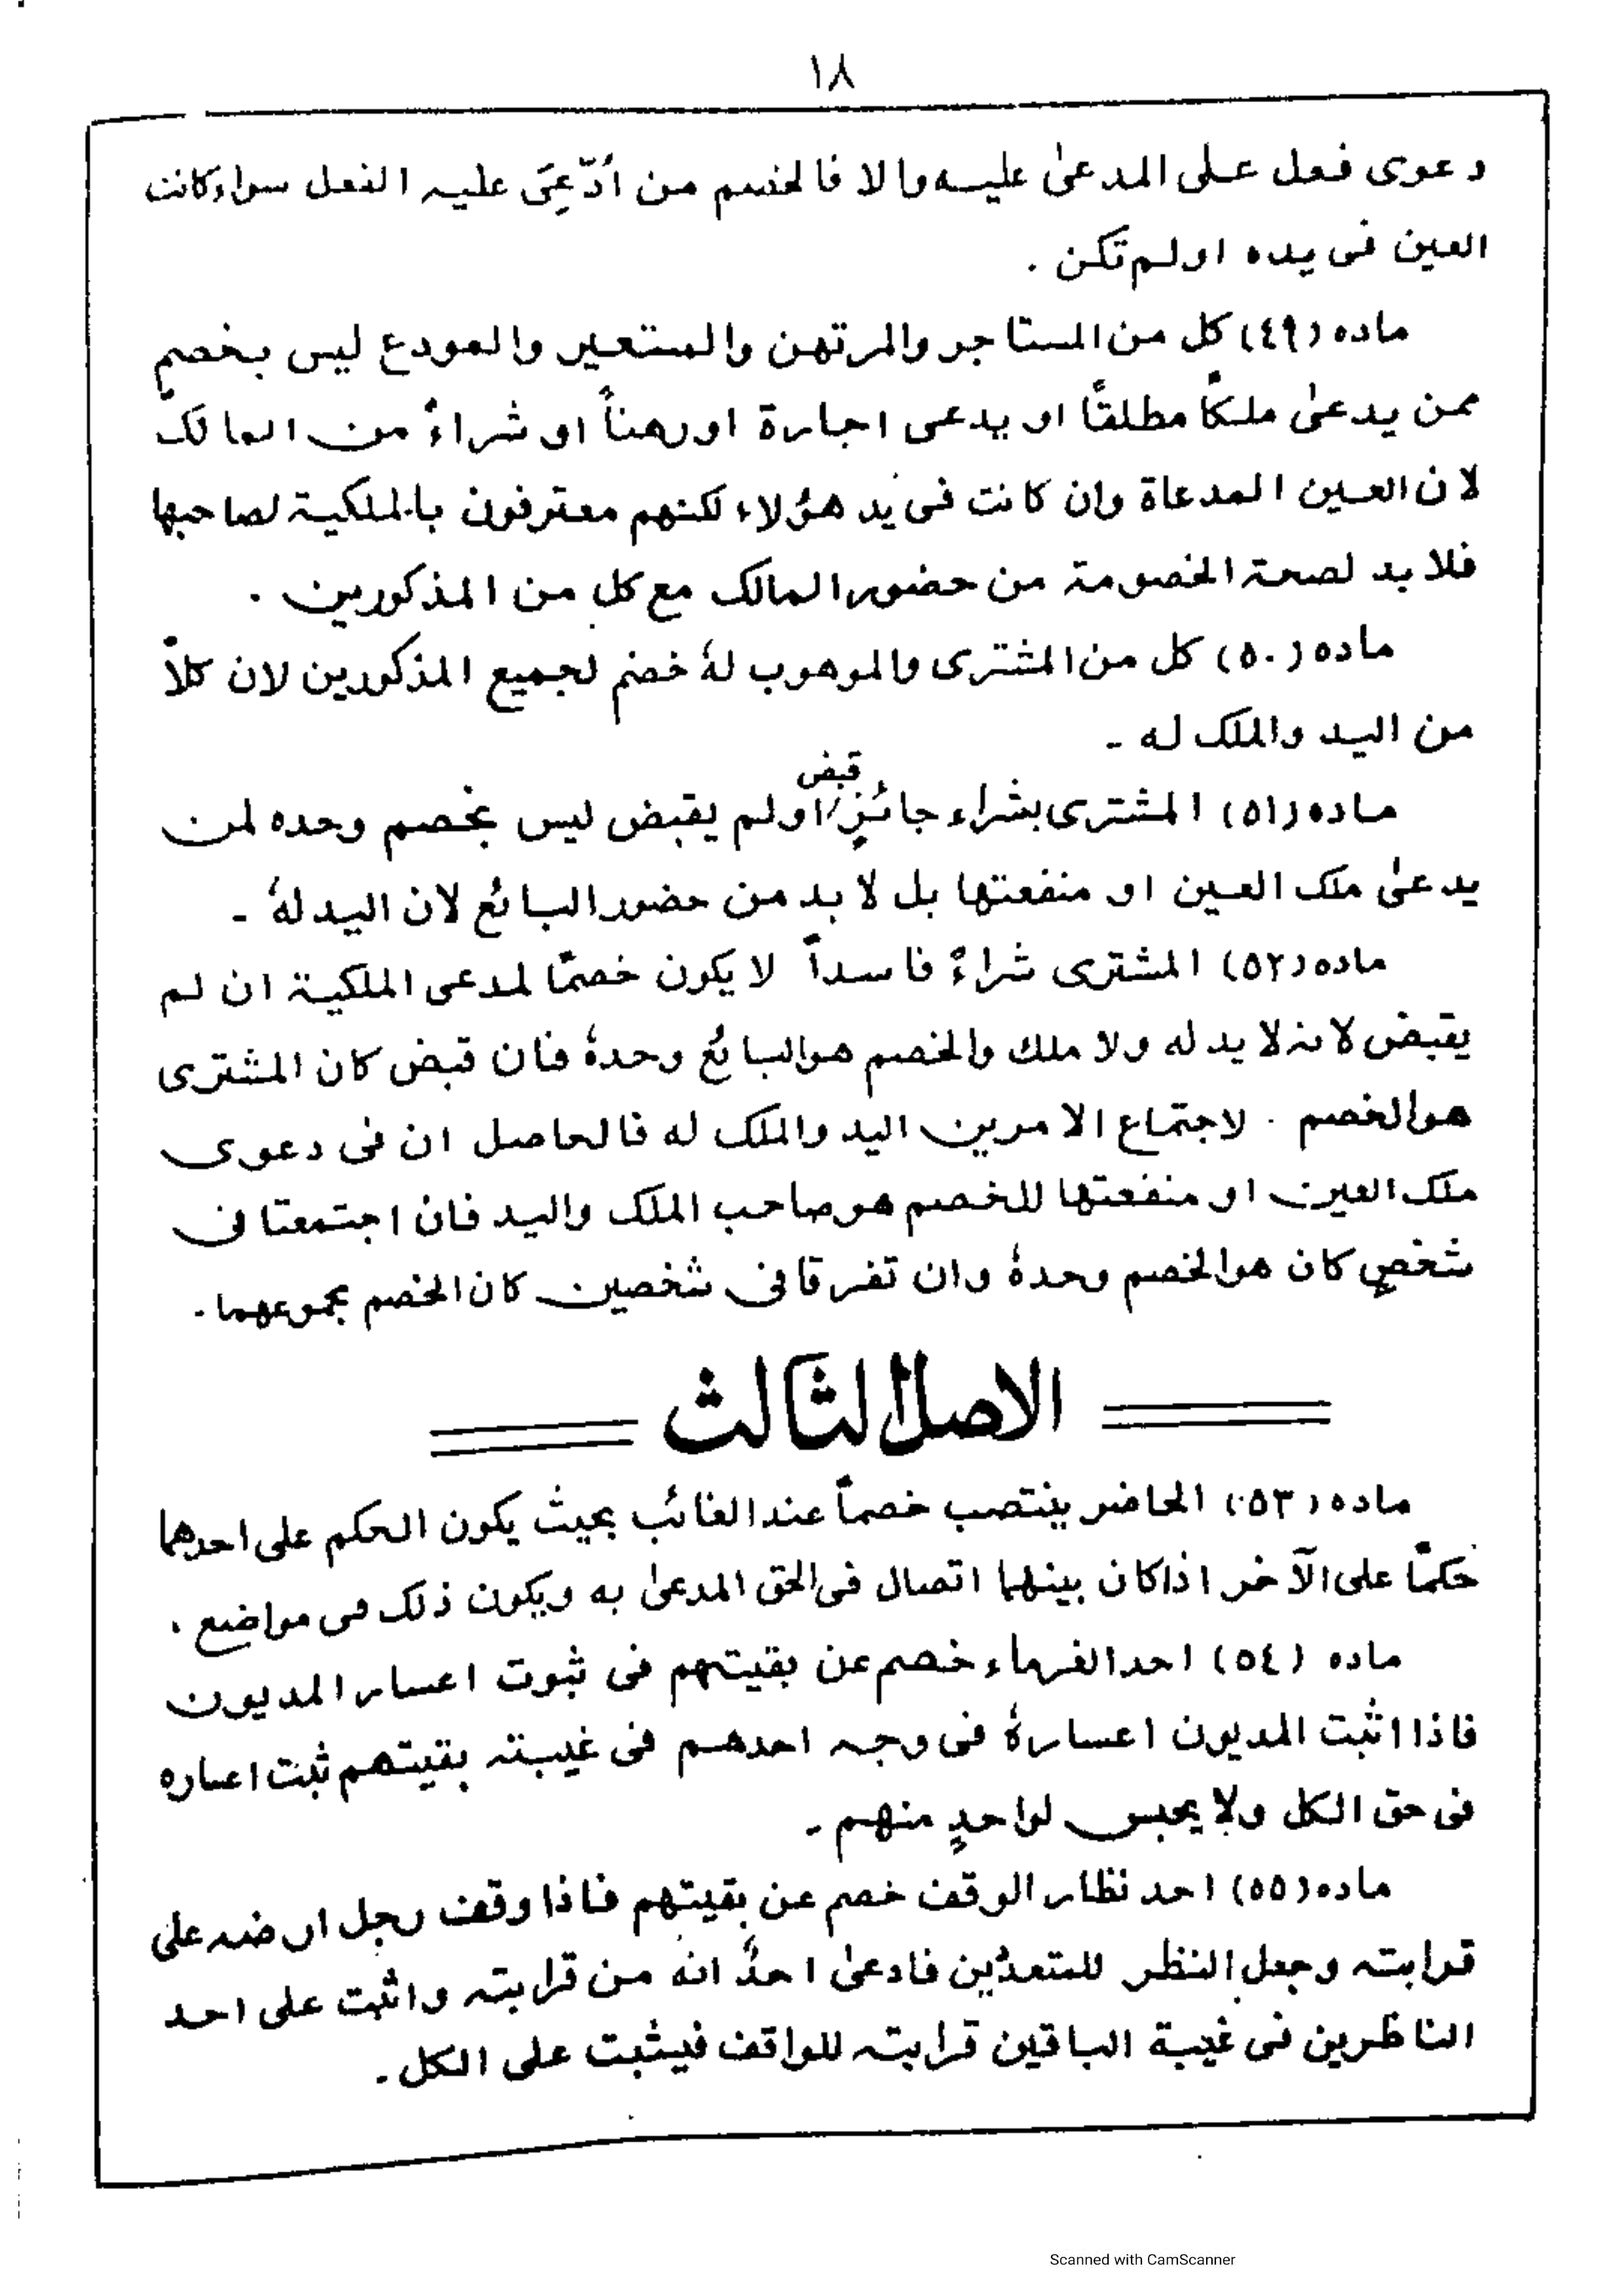 ١٨
دعوى فعل على المدعىٰ عليه والا فالخصم من اُدّعِىَ عليه الفعل سواء كانت
العين فى يده او لم تكن .
ماده (٤٩) كل من المستاجر والمرتهن والمستعير والمودع ليس بخصمٍ
ممن يدعىٰ ملكاً مطلقاً او يدعى اجارة او رهناً او شراءً من المالك
لان العين المدعاة وان كانت فى يد هؤلاء لكنهم معترفون بالملكية لصاحبها
فلا بد لصحة الخصومة من حضور المالك مع كل من المذكورين .
ماده (٥٠) كل من المشترى والموهوب لهٗ خصم لجميع المذكورين لان كلاً
من اليد والملك له ۔
قبض
ماده (٥١) المشترى بشراء جائزٍ/ اولم يقبض ليس بخصم وحده لمن
يدعىٰ ملك العين او منفعتها بل لا بد من حضور البائع لان اليد لهٗ ۔
ماده (٥٢) المشترى شراءً فاسداً لا يكون خصمًا لمدعى الملكية ان لم
يقبض لانه لا يد له ولا ملك والخصم هو البائع وحدهٗ فان قبض كان المشترى
هو الخصم . لاجتماع الامرين اليد والملك له فالحاصل ان فى دعوى
ملك العين او منفعتها للخصم هو صاحب الملك واليد فان اجتمعتا فى
شخصٍ كان هو الخصم وحدهٗ وان تفرقا فى شخصين كان الخصم مجموعهما ۔
الاصل الثالث
ماده (٥٣) الحاضر ينتصب خصماً عند الغائب بحيث يكون الحكم على احدهما
حكمًا على الآخر اذا كان بينهما اتصال فى الحق المدعىٰ به ويكون ذلك فى مواضع .
ماده (٥٤) احد الغرماء خصم عن بقيتهم فى ثبوت اعسار المديون
فاذا اثبت المديون اعسارهٗ فى وجه احدهم فى غيبته بقيتهم ثبت اعساره
فى حق الكل ولا يحبس لواحدٍ منهم ۔
ماده (٥٥) احد نظار الوقف خصم عن بقيتهم فاذا وقف رجل ارضه على
قرابته وجعل النظر للمتعدّين فادعىٰ احدٌ انهٗ من قرابته واثبت على احد
الناظرين فى غيبة الباقين قرابته للواقف فيثبت على الكل ۔
Scanned with CamScanner